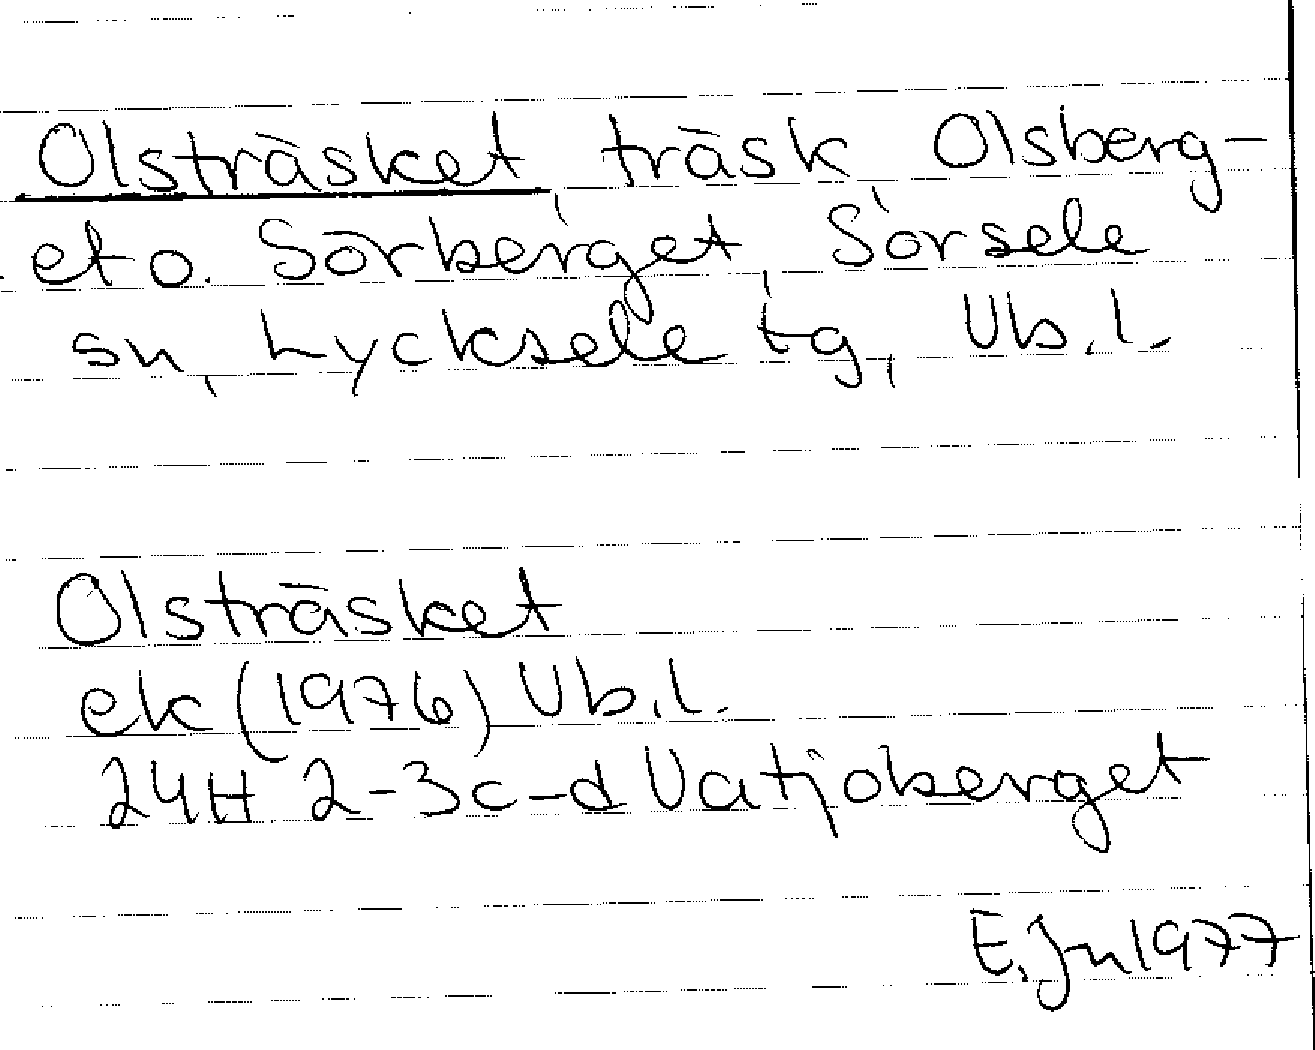 Olsträsket, träsk, Olsberg-
et o. Sörberget, Sorsele
sn, Lycksele tg, Vb.l.
Olsträsket
ek (1976) Vb.l.
24H 2-3c-d Vatjoberget
E.Jn 1977